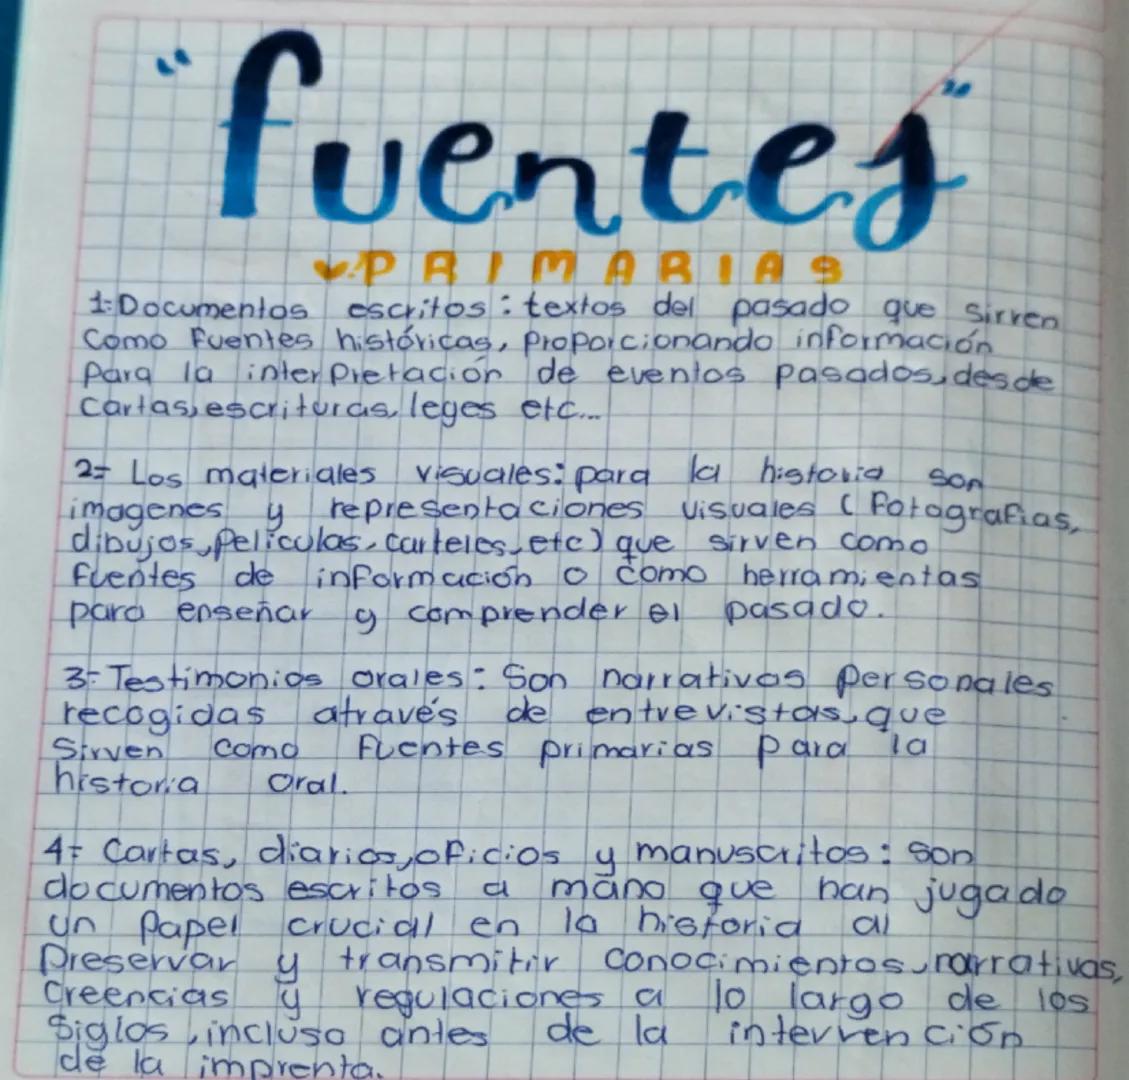 "fuentes"
PRIMARIAS
1= Documentos escritos: textos del pasado que sirven
como fuentes históricas, proporcionando información
para la interpretación de eventos pasados, desde
cartas, escrituras, leges etc...
2= Los materiales visuales: para la historia son
imagenes y representaciones visuales (fotografias,
dibujos, películas, carteles, etc) que sirven como
fuentes de información o como herramientas
para enseñar y comprender el pasado.
3= Testimonios orales: Son narrativas personales
recogidas através de entrevistas, que
Sirven como fuentes primarias para la
historia oral.
4= Cartas, diarios, oficios y manuscritos: son
documentos escritos a mano que han jugado
un papel crucial en la historia al
Preservar y transmitir conocimientos, narrativas,
Creencias y regulaciones a lo largo de los
Siglos, incluso antes de la intervención
de la imprenta.